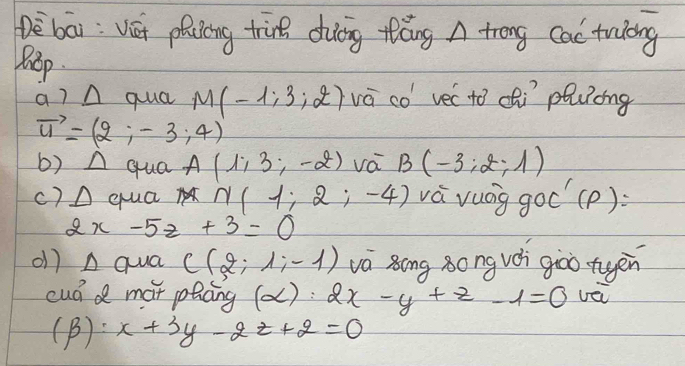 Đề bài : Viết phương trình đường thẳng Δ trong các trường
hợp.
a) Δ qua M(-1; 3; 2) và có véc tơ chỉ phương
u⃗ = (2 ; -3; 4)
b) Δ qua A (1; 3; -2) và B (-3; 2; 1)
c) Δ qua N( 1; 2 ; -4) và vuông góc (P):
2x - 5z + 3 = 0
d) Δ qua C (2; 1; -1) và song song với giao tuyến
của 2 mặt phẳng (α) : 2x - y + z - 1 = 0 và
(β) : x + 3y - 2z + 2 = 0